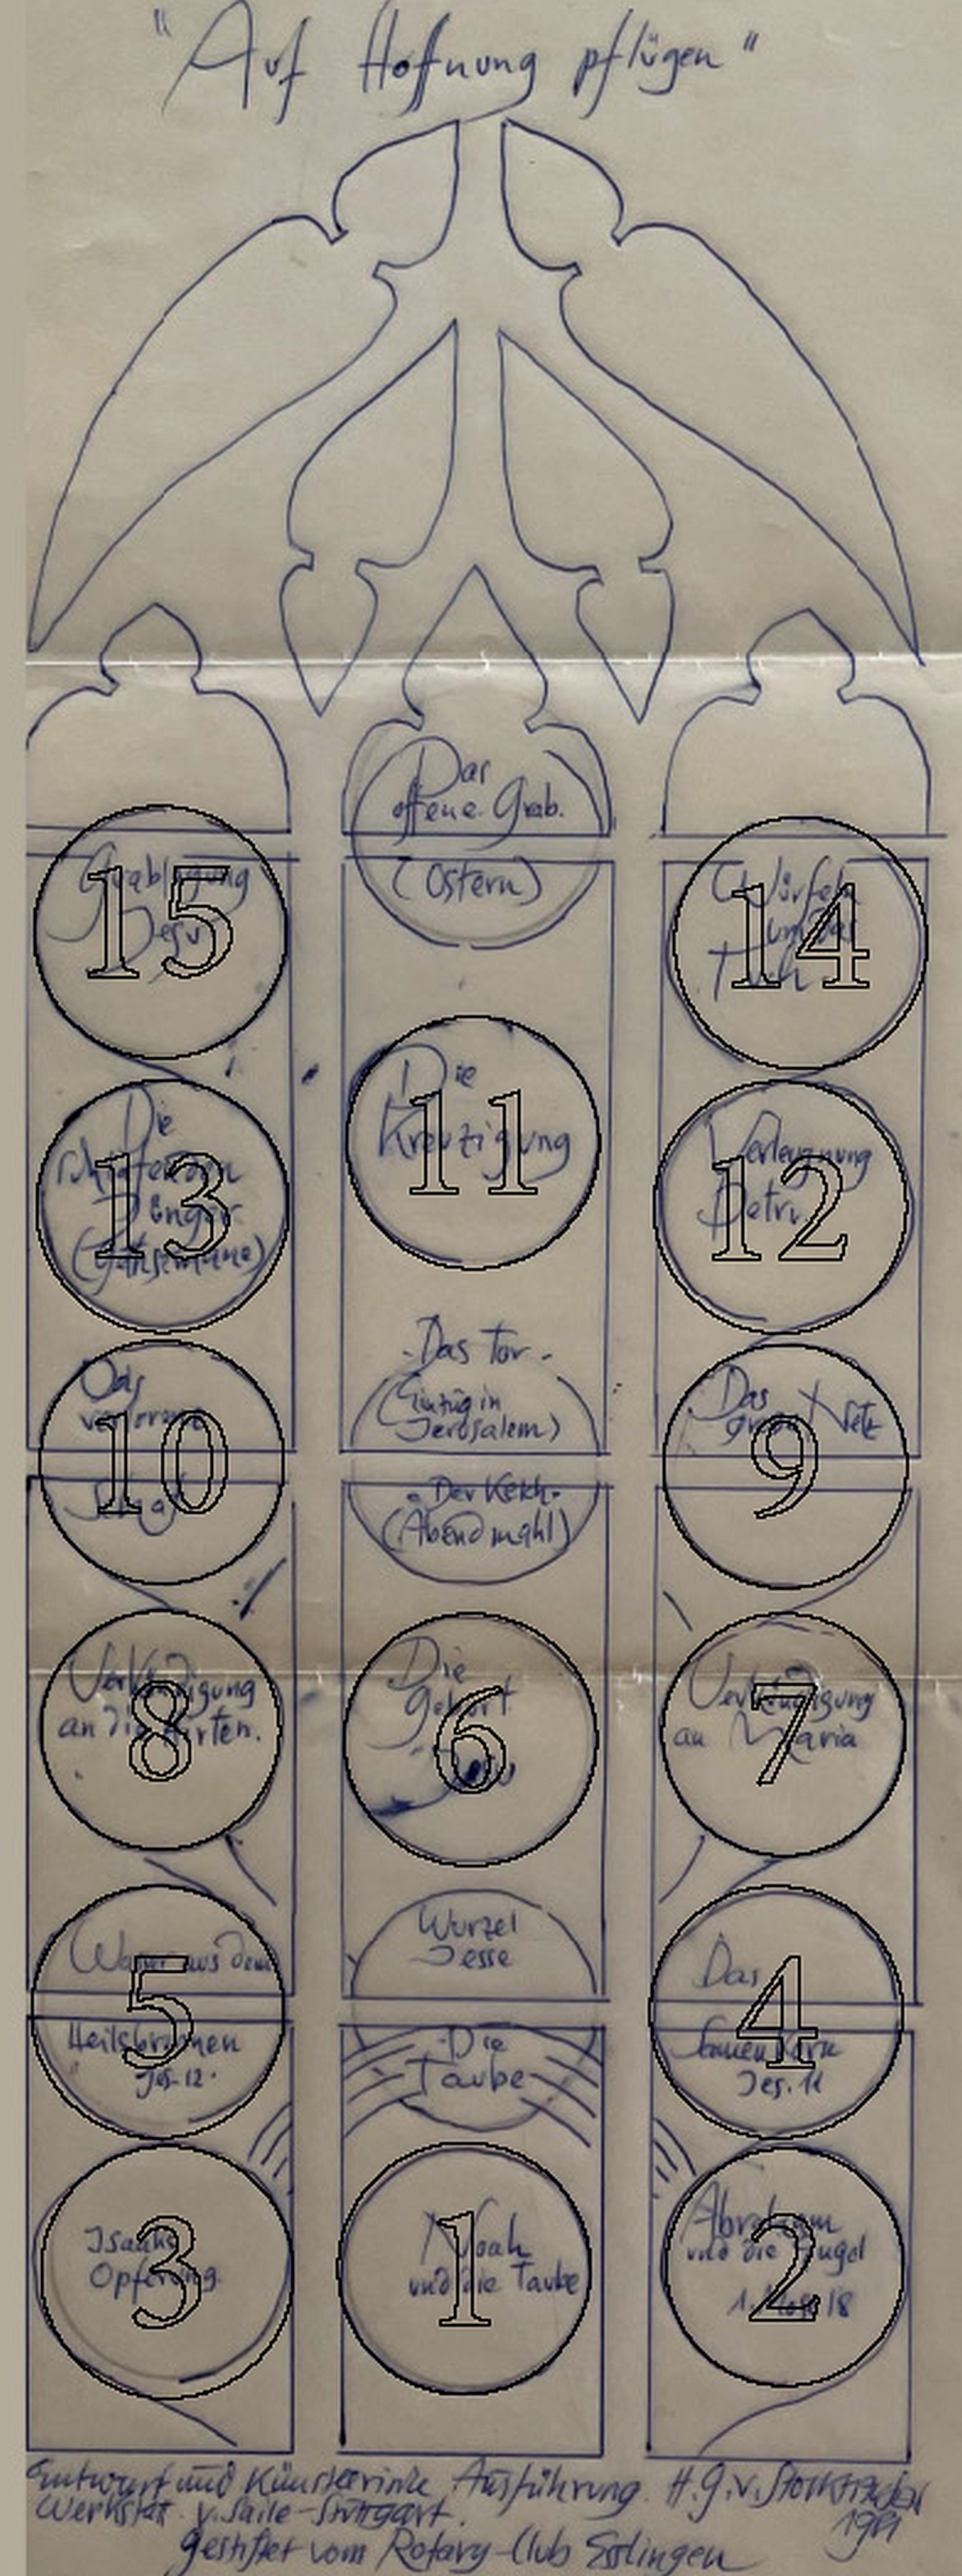 "Auf Hoffnung pflügen"
Das
offene Grab.
(Ostern)
Grablegung
Jesu
15
Würfeln
um das
Tuch
14
Die
Kreuzigung
11
Die
schlafenden
Jünger
(Gethsemane)
13
Verleugnung
Petri
12
- Das Tor -
(Einzug in
Jerusalem)
Das
verlorene
Schaf
10
Das
große Netz
9
- Der Kelch -
(Abendmahl)
Verkündigung
an die Hirten.
8
Die
Geburt
Jesu
6
Verkündigung
an Maria
7
Wurzel
Jesse
Wasser aus dem
Heilsbrunnen
Jes. 12.
5
Das
Samenkorn
Jes. 11
4
- Die
Taube -
Isaaks
Opferung.
3
Noah
und die Taube
1
Abraham
und die Engel
1. Mose 18
2
Entwurf und Künstlerische Ausführung. H.G.v.
Werkstatt v. Saile-Stuttgart.
gestiftet vom Rotary-Club Esslingen